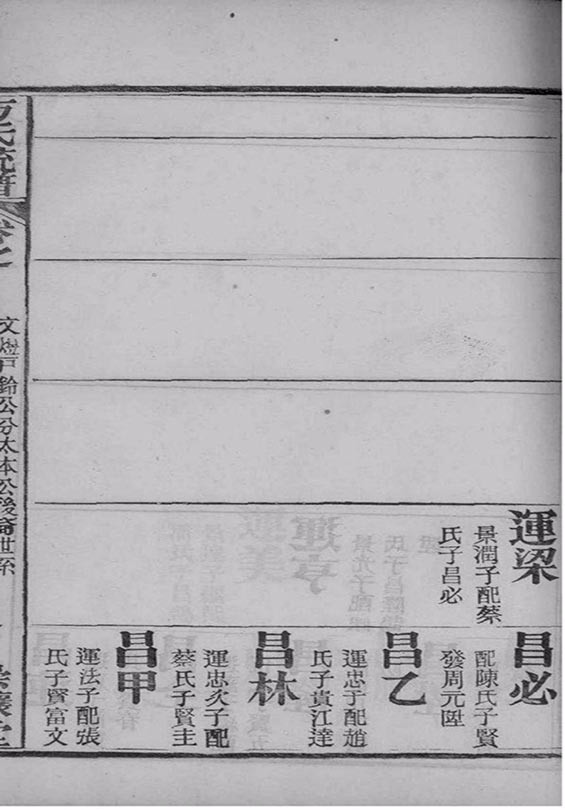 運梁
景潤子配蔡
氏子昌必
昌必
配陳氏子賢
發周元陞
昌乙
運忠子配趙
氏子貴江達
昌林
運忠次子配
蔡氏子賢主
昌甲
運法子配張
氏子賢富文
氏統譜
卷之
文燈戶齡公分太本公後裔世系